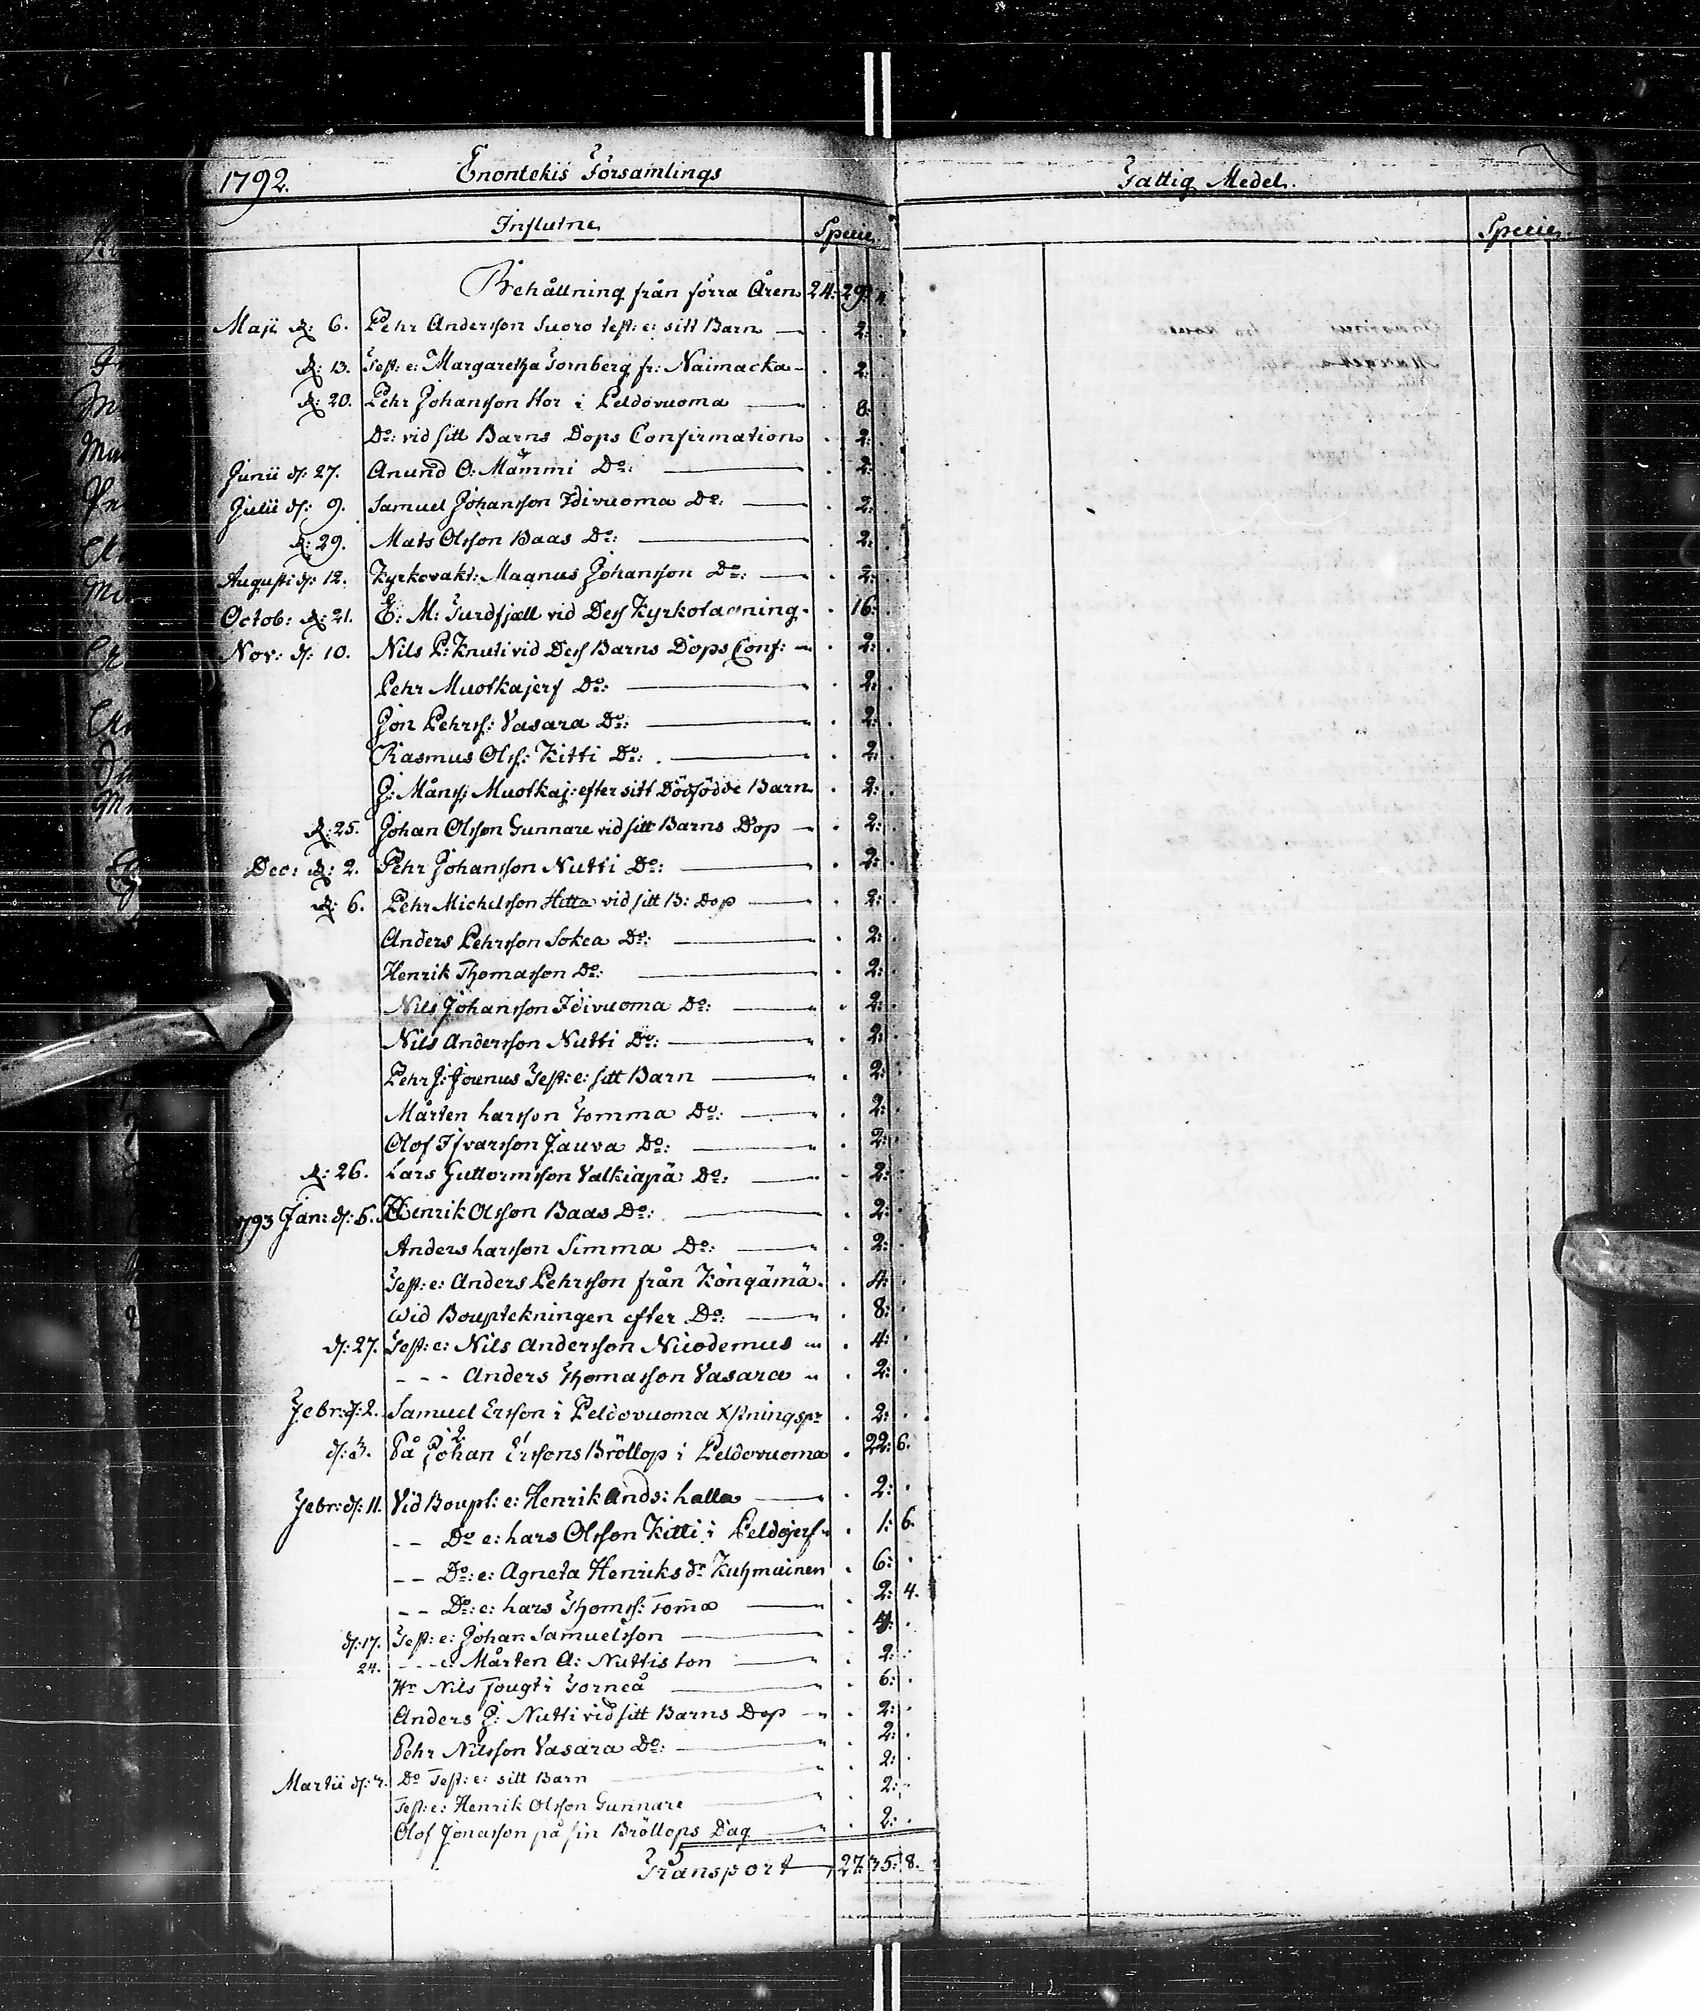 1792. Enontekis Församlings
Influtne Specie
Behållning från förra Åren 24: 29: 4.
Maji d: 6. Pehr Andersson Suoro test: e: sitt Barn — . 2: .
d: 13. Test: e: Margaretha Tornberg fr: Naimacka — . 2: .
d: 20. Pehr Johansson Hor i Peldovuoma — . 8: .
Do: vid sitt Barns Dops Confirmation . 2: .
Junii d: 27. Anund O: Mämmi Do: — . 2: .
Julii d: 9. Samuel Johansson Idivuoma Do: — . 2: .
d: 29. Mats Olsson Baas Do: — . 2: .
August: d: 12. Kyrkovakt: Magnus Johansson Do: — . 2: .
Octob: d: 21. E: M: Turdfjæll vid Dess Kyrkotagning . . 16: .
Nov: d: 10. Nils P: Knuti vid Dess Barns Dops Conf: — . 2: .
Pehr Muotkajerf Do: — . 2: .
Jon Pehrss: Vasara Do: — . 2: .
Rasmus Olss: Kitti Do: — . 2: .
J: Månss: Muotkaj: efter sitt Dödfödde Barn . 2: .
d: 25. Johan Olsson Gunnare vid sitt Barns Dop — . 2: .
Dec: d: 2. Pehr Johansson Nutti Do: — . 2: .
d: 6. Pehr Michelsson Hetta vid sitt B: Dop — . 2: .
Anders Pehrsson Sokea Do: — . 2: .
Henrik Thomasson Do: — . 2: .
Nils Johansson Idivuoma Do: — . 2: .
Nils Andersson Nutti Do: — . 2: .
Pehr J: Jounus Test: e: sitt Barn — . 2: .
Mårten Larsson Tomma Do: — . 2: .
Olof Ifvarsson Jauva Do: — . 2: .
d: 26. Lars Guttormsson Valkiapä Do: — . 2: .
1793 Jan: d: 6. Henrik Olsson Baas Do: — . 2: .
Anders Larsson Simma Do: — . 2: .
Test: e: Anders Pehrsson från Köngämä . . 4: .
Wid Bouptekningen efter Do: — . 8: .
d: 27. Test: e: Nils Andersson Nicodemus — . 4: .
- - - Anders Thomasson Vasara . 2: .
Febr: d: 2. Samuel Ersson i Peldovuoma . 2: .
d: 3. På Johan Erssons Bröllop i Peldovuoma . 22: 6.
Febr: d: 11. Vid Boupt: e: Henrik Ands: Lalla — . 2: .
- - Do e: Lars Olsson Kitti i Peldojerf . 1: 6.
- - Do: e: Agneta Henriks dr Kuhmainen . 6: .
- - Do: e: Lars Thomss: Tom̄a — . 2: 4.
d: 17. Test: e: Johan Samuelsson — . 4: .
24. - - - e: Mårten A: Nuttis son — . 2: .
Hr Nils Fougt i Torneå — . 6: .
Anders J: Nutti vid sitt Barns Dop — . 2: .
Pehr Nilsson Vasara Do: — . 2: .
Martii Do Test: e: sitt Barn — . 2: .
Test: e: Henrik Olsson Gunnare — . 2: .
Olof Jonasson på sin Bröllops Dag — . 2: .
Transport — 27: 35: 8.
Fattig Medel.
Specie